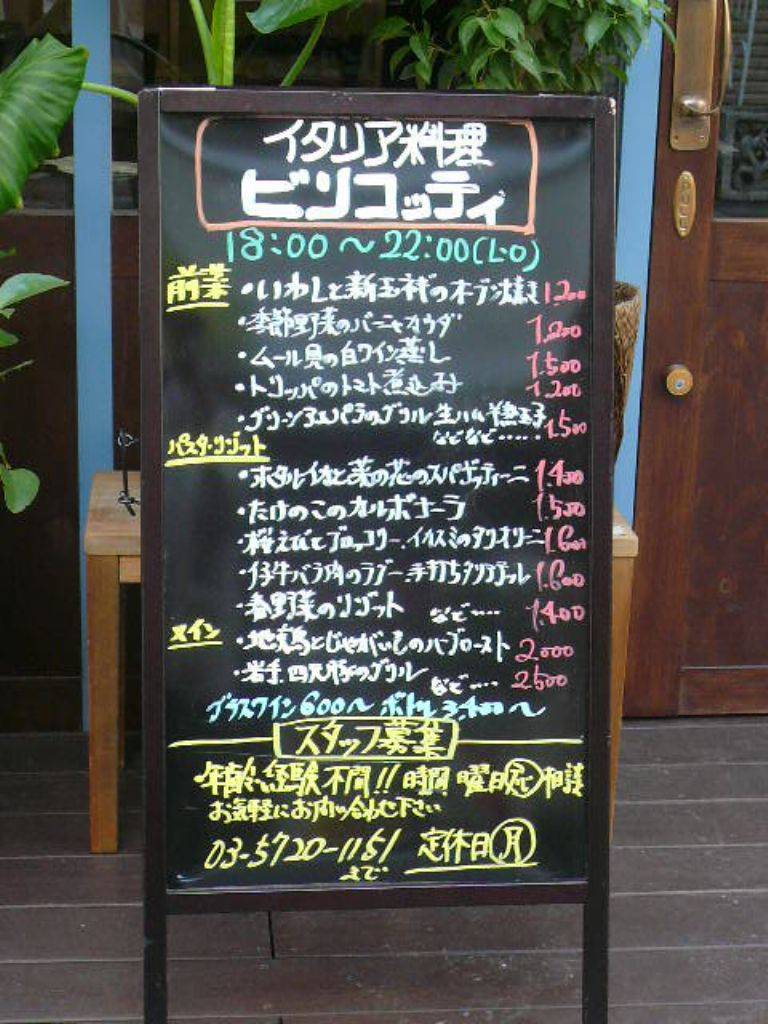 イタリア料理
ビリコッティ
18:00～22:00(L.O)
前菜 ・いわしと新玉ねぎのオーブン焼き 1.200
・季節野菜のバーニャカウダ 1.200
・ムール貝の白ワイン蒸し 1.500
・トリッパのトマト煮込み 1.200
・グリーンアスパラのグリル 生ハム 温玉子 1.500
などなど……
パスタ・リゾット
・ホタルイカと菜の花のスパゲッティーニ 1.400
・たけのこのカルボナーラ 1.500
・桜えびとブロッコリー、イカスミのタリオリーニ 1.600
・仔牛バラ肉のラグー 手打ちタリアテッレ 1.600
・春野菜のリゾット など…. 1.400
メイン ・地鶏とじゃがいものハーブロースト 2000
・岩手 四元豚のグリル など…. 2500
グラスワイン600～ ボトル3.400～
スタッフ募集
・年齢、経験不問!! 時間 曜日応相談
お気軽にお問い合わせ下さい
03-5720-1151 定休日(月)
まで
PULL